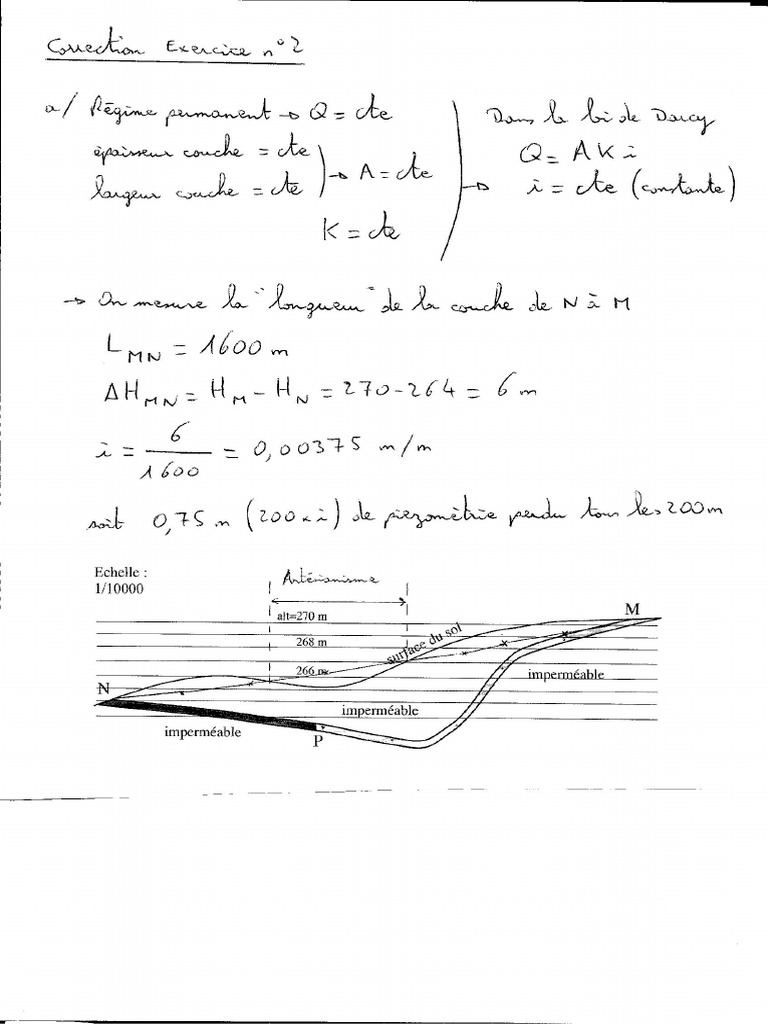 Correction Exercice n°2
a/ Régime permanent → Q = cte
épaisseur couche = cte
largeur couche = cte
→ A = cte
K = cte
Dans la loi de Darcy
Q = A K i
→ i = cte (constante)
→ On mesure la "longueur" de la couche de N à M
L MN = 1600 m
ΔH MN = H M - H N = 270 - 264 = 6 m
i = 6 / 1600 = 0,00375 m/m
soit 0,75 m (200 × i) de piézométrie perdu tous les 200 m
Echelle :
1/10000
Artésianisme
alt=270 m
268 m
266 m
surface du sol
M
N
P
imperméable
imperméable
imperméable